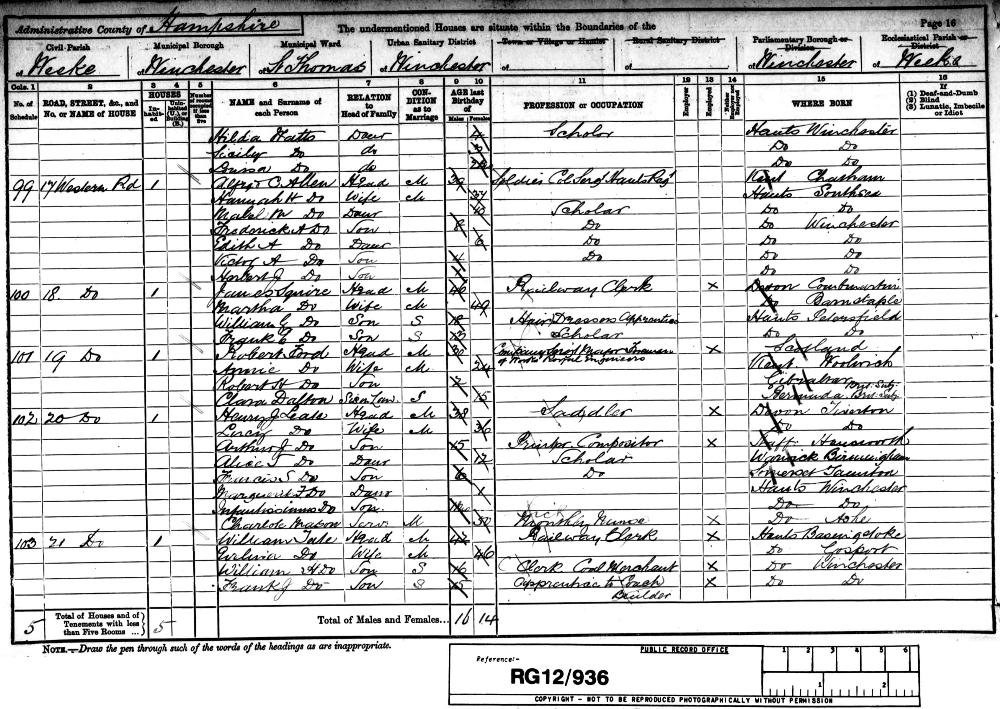 Administrative County of Hampshire The undermentioned Houses are situate within the Boundaries of the Page 16
Civil Parish Municipal Borough Municipal Ward Urban Sanitary District Town or Village or Hamlet Rural Sanitary District Parliamentary Borough or Division Ecclesiastical Parish or District
of Weeke of Winchester of St Thomas of Winchester of of of Winchester of Weeke
Cols. 1 2 3 4 5 6 7 8 9 10 11 12 13 14 15 16
No. of Schedule ROAD, STREET, &c., and No. or NAME of HOUSE HOUSES In-habited Unin-habited (U.) or Building (B.) Number of rooms occupied if less than five NAME and Surname of each Person RELATION to Head of Family CON-DITION as to Marriage AGE last Birthday of Males Females PROFESSION or OCCUPATION Employer Employed Neither Employer nor Employed WHERE BORN (1) Deaf-and-Dumb (2) Blind (3) Lunatic, Imbecile or Idiot
Hilda Daur Scholar Hants Winchester
Do do Do Do
Louisa Do do Do Do
99 17 Western Rd 1 Alfred C. Allen Head M 39 Soldier Col Sergt Hants Regt Kent Chatham
Hannah H Do Wife M 37 Hants Southsea
Mabel M Do Daur 10 Scholar Do Do
Frederick A Do Son 8 Do Do Winchester
Edith A Do Daur 6 Do Do Do
Victor A Do Son 4 Do Do Do
Herbert J Do Son Do Do
100 18 Do 1 James Squire Head M 46 Railway Clerk X Devon
Martha Do Wife M 49 Do Barnstaple
William G Do Son S 18 Hair Dressers Apprentice Hants Petersfield
Frank E Do Son S 13 Scholar Do Do
101 19 Do 1 Robert Ford Head M 30 Company Sergt Major Foreman of Works Royal Engineers X Scotland
Annie Do Wife M 24 Kent Woolwich
Robert H Do Son 2 Gibraltar Brit. Subj.
Clara Dalton S 15 Bermuda Brit. Subj.
102 20 Do 1 Henry J Lease Head M 38 Saddler X Devon Tiverton
Lucy Do Wife M 36 Do Do
Arthur J Do Son 15 Printer Compositor X Staff Handsworth
Alice Do Daur 12 Scholar Warwick Birmingham
Francis S Do Son 6 Do Somerset Taunton
Marguerit Do Daur Hants Winchester
Do Son Do Do
Charlote Mason Serv M 50 Monthly Nurse X Do Ashe
103 21 Do 1 William Tate Head M 47 Railway Clerk X Hants Basingstoke
Do Wife M 46 Do Gosport
William H Do Son S 16 Clerk Coal Merchant X Do Winchester
Frank J Do Son S 15 Apprentice to Coach Builder X Do Do
5 Total of Houses and of Tenements with less than Five Rooms ... 5 Total of Males and Females... 16 14
NOTE.—Draw the pen through such of the words of the headings as are inappropriate.
PUBLIC RECORD OFFICE 1 2 3 4 5 6
Reference:- RG12/936 1 2
COPYRIGHT - NOT TO BE REPRODUCED PHOTOGRAPHICALLY WITHOUT PERMISSION